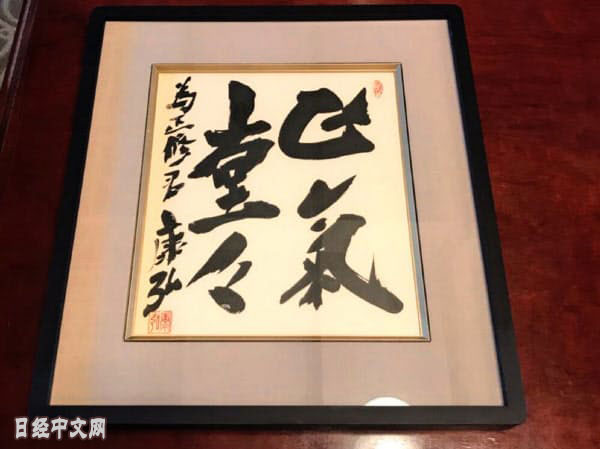 正氣
堂々
為正修君 康弘
日经中文网